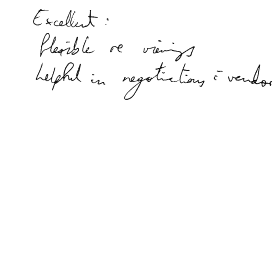 Excellent:
flexible re viewings
helpful in negotiations c̄ vendor